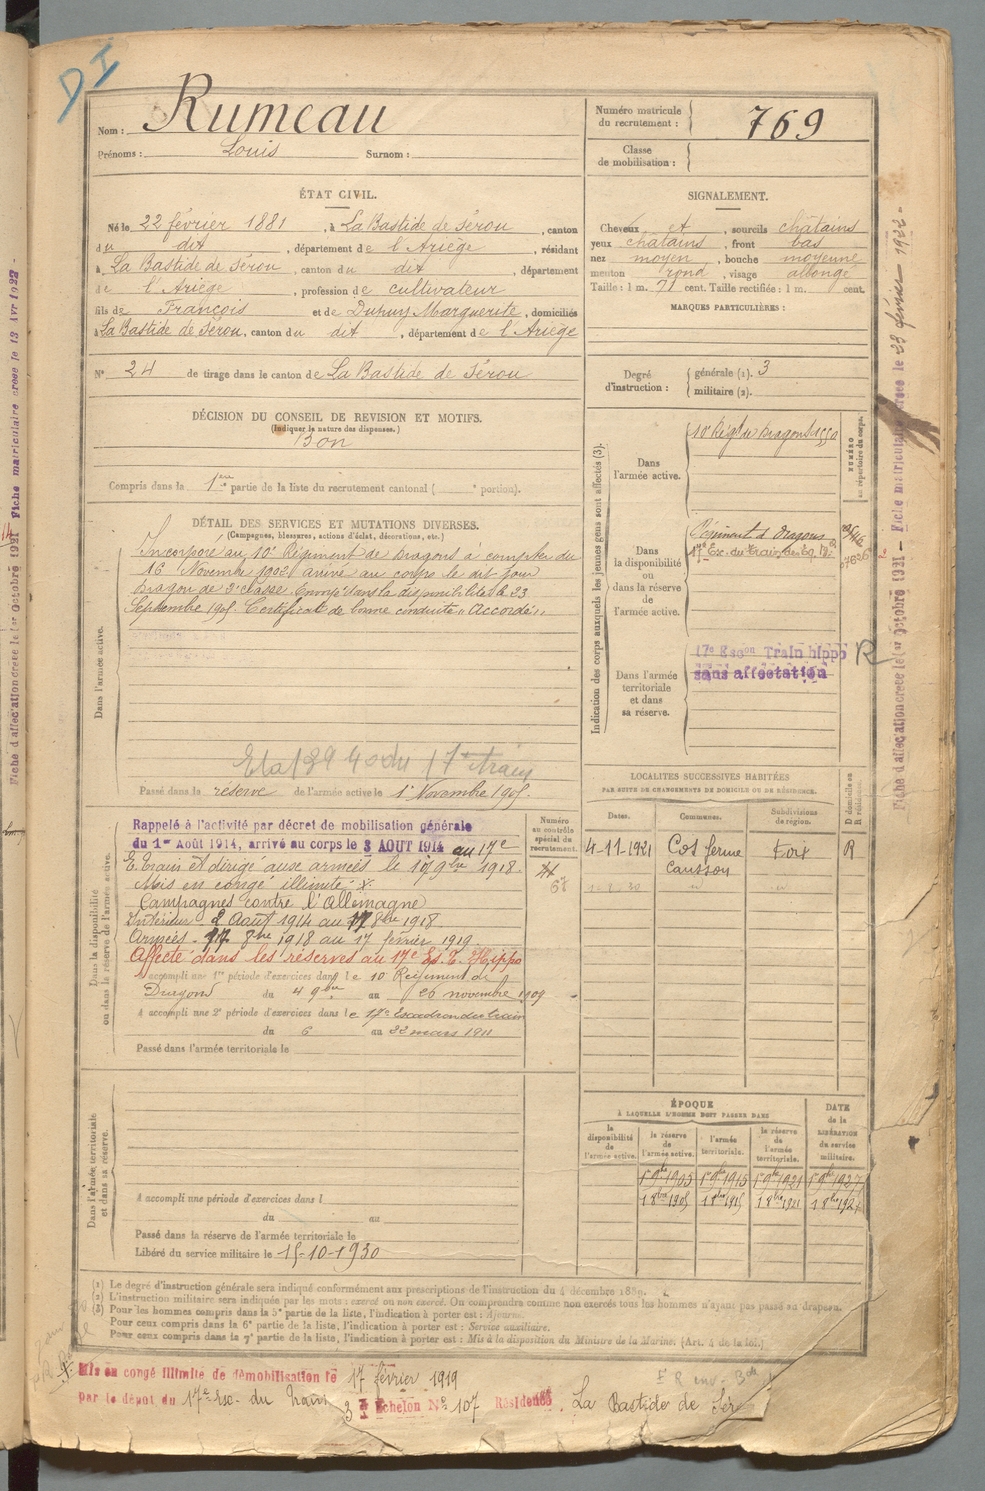 D I
Nom : Rumeau
Prénoms : Louis Surnom :
Numéro matricule du recrutement : 769
Classe de mobilisation :
ÉTAT CIVIL.
Né le 22 février 1881, à La Bastide de Sérou, canton
du dit, département de l'Ariège, résidant
à La Bastide de Sérou, canton du dit, département
de l'Ariège, profession de cultivateur
fils de François et de Dupuy Marguerite, domiciliés
à La Bastide de Sérou, canton du dit, département de l'Ariège
N° 24 de tirage dans le canton de La Bastide de Sérou
SIGNALEMENT.
Cheveux et, sourcils châtains
yeux châtains, front bas
nez moyen, bouche moyenne
menton rond, visage allongé
Taille : 1 m. 71 cent. Taille rectifiée : 1 m. cent.
MARQUES PARTICULIÈRES :
Degré d'instruction : générale (1). 3
militaire (2).
DÉCISION DU CONSEIL DE REVISION ET MOTIFS.
(Indiquer la nature des dispenses.)
Bon
Compris dans la 1ère partie de la liste du recrutement cantonal ( e portion).
DÉTAIL DES SERVICES ET MUTATIONS DIVERSES.
(Campagnes, blessures, actions d'éclat, décorations, etc.)
Dans l'armée active.
Incorporé au 10e Régiment de Dragons à compter du
16 Novembre 1902 arrivé au corps le dit jour
Dragon de 2e classe. Envoyé dans la disponibilité le 23
Septembre 1905. Certificat de bonne conduite "Accordé".
Passé dans la réserve de l'armée active le 1er Novembre 1905.
Indication des corps auxquels les jeunes gens sont affectés (3).
NUMÉRO au répertoire du corps.
Dans l'armée active.
10e Régt de Dragons 1550
Dans la disponibilité ou dans la réserve de l'armée active.
Régiment d. Dragons
17e Ex. du Train des Eq.
Dans l'armée territoriale et dans sa réserve.
17e Escon Train hippo R
sans affectation
Dans la disponibilité ou dans la réserve de l'armée active.
Numéro au contrôle spécial du recrutement.
Rappelé à l'activité par décret de mobilisation générale
du 1er Août 1914, arrivé au corps le 3 AOUT 1914 au 17e
E. Train et dirigé aux armées le 1918.
Mis en congé illimité
Campagnes contre l'Allemagne
Intérieur 2 Août 1914 au 8bre 1918.
Armées 8bre 1918 au 17 février 1919
Affecté dans les réserves au 17e Es. T. Hippo
A accompli une 1re période d'exercices dans le 10e Régiment de
Dragons du 4 9bre au 26 novembre 1909
A accompli une 2e période d'exercices dans le 17e Escadron du train
du 6 au 22 mars 1911
Passé dans l'armée territoriale le
LOCALITES SUCCESSIVES HABITÉES
PAR SUITE DE CHANGEMENTS DE DOMICILE OU DE RÉSIDENCE.
Dates. Communes. Subdivisions de région. D domicile ou R résidence.
4-11-1921 Cos ferme Causson Foix R
ÉPOQUE
À LAQUELLE L'HOMME DOIT PASSER DANS
la disponibilité de l'armée active. la réserve de l'armée active. l'armée territoriale. la réserve de l'armée territoriale. DATE de la LIBÉRATION du service militaire.
1r 9bre 1905 1r 9bre 1915 1r 9bre 1921 1r 9bre 1927
1 8bre 1905 1 8bre 1915 1 8bre 1921 1 8bre 1927
Dans l'armée territoriale et dans sa réserve.
A accompli une période d'exercices dans l
du au
Passé dans la réserve de l'armée territoriale le
Libéré du service militaire le 15-10-1930
(1) Le degré d'instruction générale sera indiqué conformément aux prescriptions de l'instruction du 4 décembre 1889.
(2) L'instruction militaire sera indiquée par les mots : exercé ou non exercé. On comprendra comme non exercés tous les hommes n'ayant pas passé au drapeau.
(3) Pour les hommes compris dans la 5e partie de la liste, l'indication à porter est : Ajourné.
Pour ceux compris dans la 6e partie de la liste, l'indication à porter est : Service auxiliaire.
Pour ceux compris dans la 7e partie de la liste, l'indication à porter est : Mis à la disposition du Ministre de la Marine. (Art. 4 de la loi.)
Mis en congé illimité de démobilisation le 17 février 1919
par le dépôt du 17e Esc. du Train 3 Echelon N° 107 Résidence La Bastide de Sér
Fiche d'affectation créée le 1er Octobre 1921 — Fiche matriculaire créée le 23 février 1922 -
Fiche d'affectation créée le 1er Octobre 1921 Fiche matriculaire créée le 13 Avr 1922 -